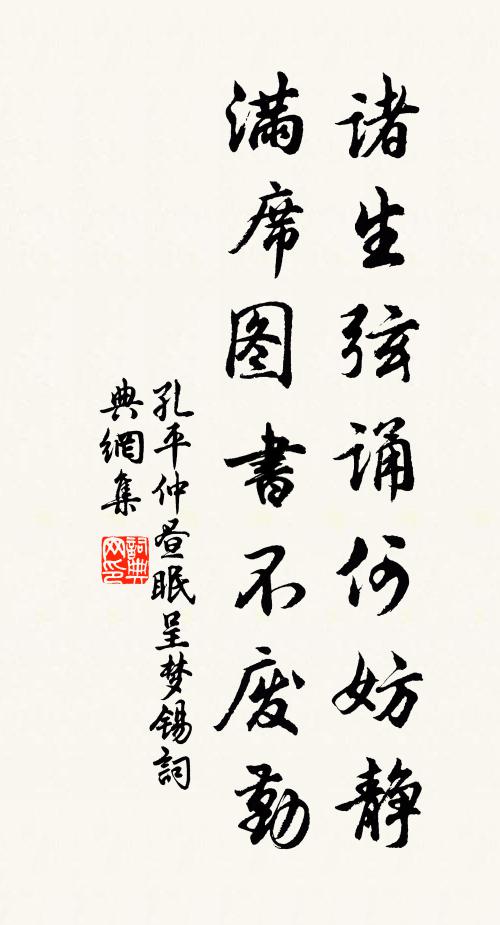 诸生弦诵何妨静
满席图書不废勤
孔平仲昼眠呈梦锡詞
典網集
詞典网印